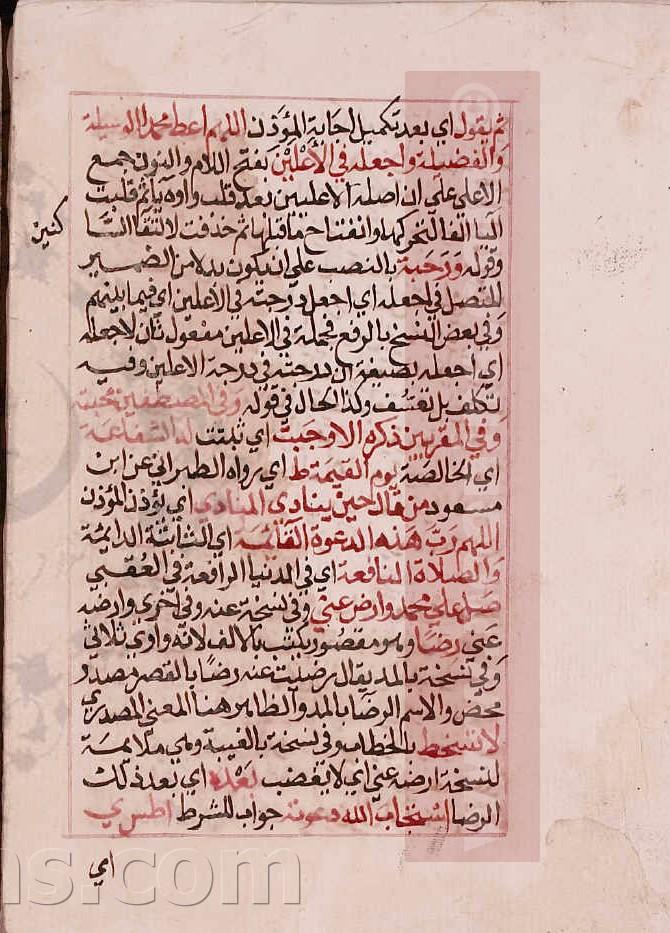 ثم يقول اي بعد تكميل اجابة المؤذن اللهم اعط محمدا الوسيلة
والفضيلة واجعله في الأعلين بفتح اللام والنون جمع
الاعلى على ان اصله الاعليين بعد قلب واوه ياء ثم قلبت
اليا الفا لتحركها وانفتاح ما قبلها ثم حذفت لالتقا السا
كنين
وقوله ودرجته بالنصب على ان يكون بدلا من الضمير
المتصل في اجعله اي اجعل درجته في الأعلين اي فيما بينهم
وفي بعض النسخ بالرفع فجملة في الاعلين مفعول ثان لاجعله
اي اجعله بصيغة ان درجته في درجة الاعلين وفيه
تكلف بل تعسف وكذا الحال في قوله وفي المصطفين محبته
وفي المقربين ذكره الا وجبت اي ثبتت له الشفاعة
اي الخالصة يوم القيمة ط اي رواه الطبراني عن ابن
مسعود من قال حين ينادي المنادي اي يؤذن المؤذن
اللهم رب هذه الدعوة القائمة اي الثابتة الدايمة
والصلاة النافعة اي في الدنيا الرافعة في العقبي
صل على محمد وارض عني وفي نسخة عنه وفي اخري وارضه
عني رضا وهو مقصور يكتب بالالف لانه واوي ثلاثي
وفي نسخة بالمد يقال رضيت عنه رضا بالقصر مصدر
محض والاسم الرضا بالمد والظاهر هنا المعني المصدري
لا تسخط بالخطاب وفي نسخة بالغيبة وهي ملايمة
لنسخة ارضه عني اي لا يغضب بعده اي بعد ذلك
الرضا استجاب الله دعوته جواب للشرط اطس ي
اي
ns.com